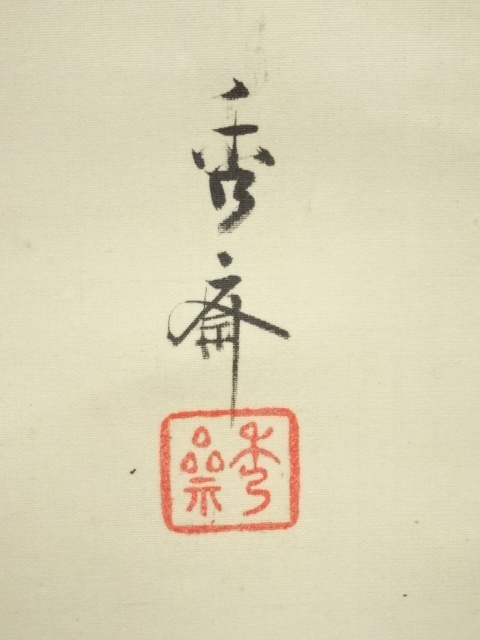 秀斎
秀斎